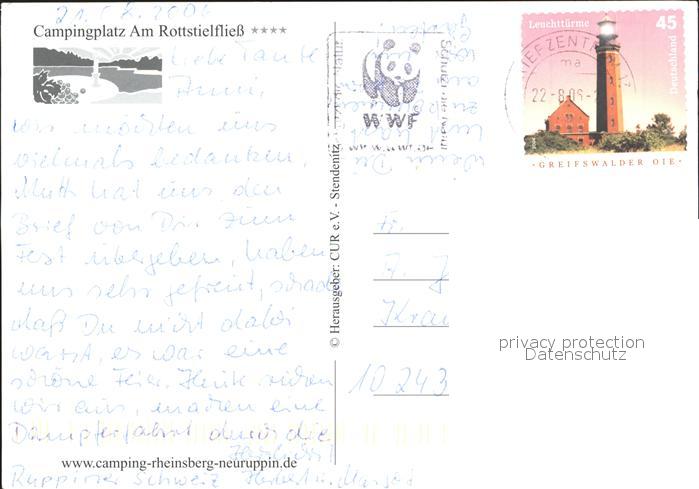 21.08.2006
Campingplatz Am Rottstielfließ ★★★★
Liebe Tante
Anni,
wir möchten uns
vielmals bedanken,
Mutti hat uns den
Brief von Dir zum
Fest übergeben, haben
uns sehr gefreut, schade
daß Du nicht dabei
warst, es war eine
schöne Feier. Heute ruhen
wir aus, machen eine
Dampferfahrt durch die
Ruppiner Schweiz
Herzlichst
Herbert u. Margot
www.camping-rheinsberg-neuruppin.de
© Herausgeber: CUR e.V. - Stendenitz
wenn Du
Schützt die Natur
WWF
www.wwf.de
BRIEFZENTRUM
ma
22.-8.06
Leuchttürme
45
Deutschland
·GREIFSWALDER OIE·
Fr.
A. J
Krau
10243
privacy protection
Datenschutz